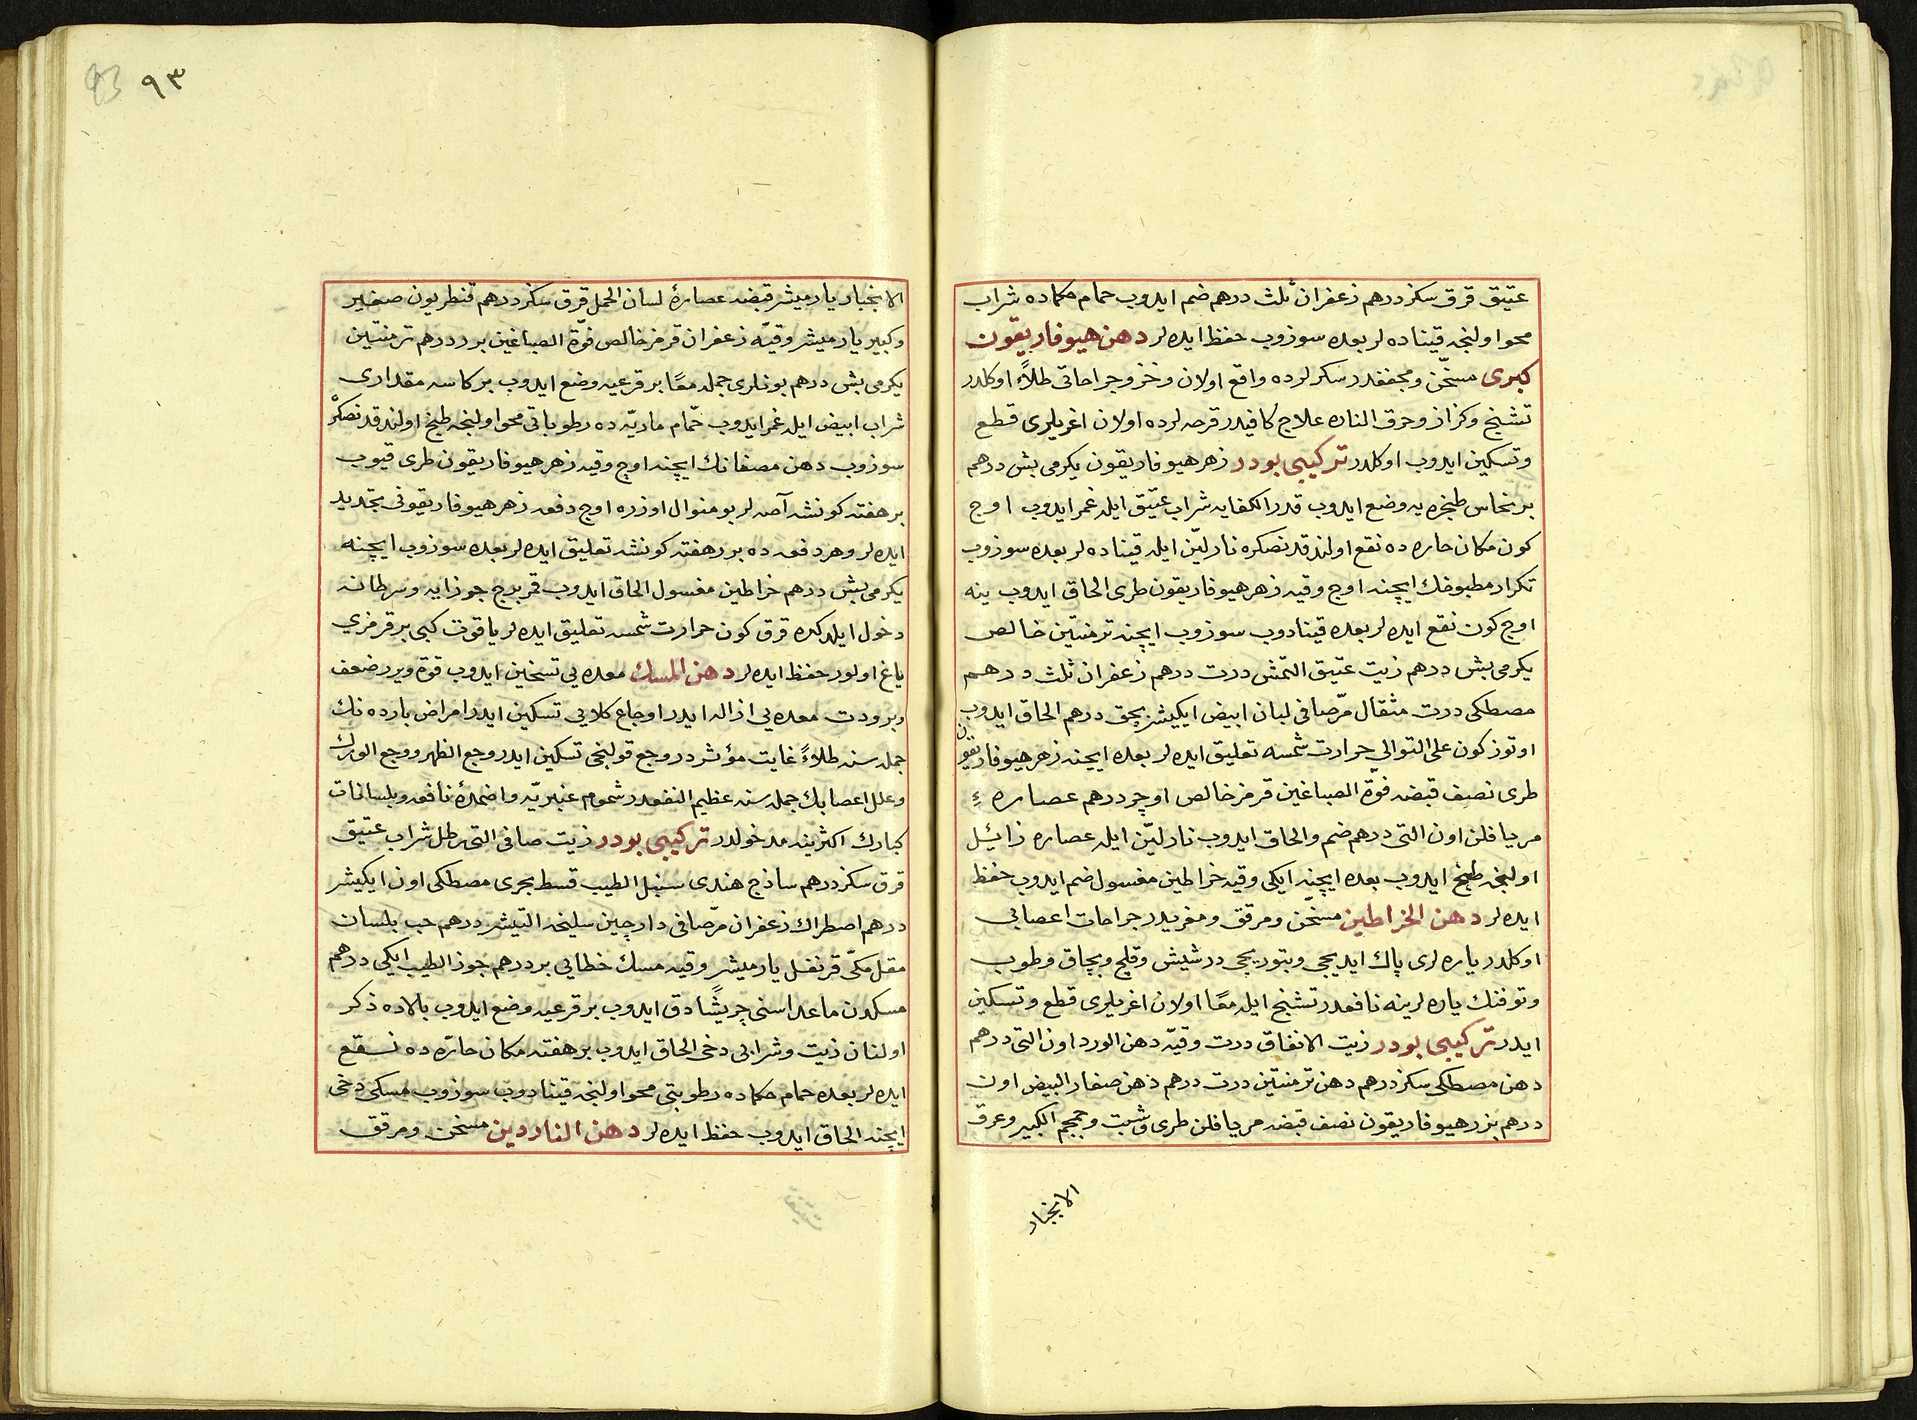 عتیق قرق سکز درهم زعفران ثلث درهم ضم ایدوب حمام حکماده شراب
محو اولنجه قیناده لر بعده سوزوب حفظ ایده لر دهن هیوفاریقون
کبری مسخّن و مجففدر سکرلرده واقع اولان وخز و جراحاتی طلاءً اوکلدر
تشنج و کزاز و حرق الناره علاج کافیدر قرحه لرده اولان اغریلری قطع
و تسکین ایدوب اوکلدر ترکیبی بودر زهر هیوفاریقون یکرمی بش درهم
بر نحاس طنجره یه وضع ایدوب قدر الکفایه شراب عتیق ایله غمر ایدوب اوج
کون مکان حاره ده نقع اولندقدنصکره نار لیّن ایله قیناده لر بعده سوزوب
تکرار مطبوخک ایچنه اوج وقیه زهر هیوفاریقون طری الحاق ایدوب ینه
اوج کون نقع ایده لر بعده قینادوب سوزوب ایچنه ترمنتین خالص
یکرمی بش درهم زیت عتیق التمش درت درهم زعفران ثلث درهم
مصطکی درت مثقال مرّ صافی لبان ابیض ایکیشر بچق درهم الحاق ایدوب
اوتوز کون علی التوالی حرارت شمسه تعلیق ایده لر بعده ایچنه زهر هیوفاریقون
طری نصف قبضه فوّة الصباغین قرمز خالص اوچر درهم عصاره ءِ
مریافلن اون التی درهم ضم والحاق ایدوب نار لیّن ایله عصاره زائل
اولنجه طبخ ایدوب بعده ایچنه ایکی وقیه خراطین مغسول ضم ایدوب حفظ
ایده لر دهن الخراطین مسخّن و مرقق و مغریدر جراحات اعصابی
اوکلدر یاره لری پاک ایدیجی و بتوریجی در شیش و قلیج و بچاق و طوب
و توفنک یاره لرینه نافعدر تشنج ایله معًا اولان اغریلری قطع و تسکین
ایدر ترکیبی بودر زیت الانفاق درت وقیّه دهن الورد اون التی درهم
دهن مصطکی سکز درهم دهن ترمنتین درت درهم دهن صفار البیض اون
درهم بزر هیوفاریقون نصف قبضه مریافلن طری و شبت و جمجم الکبیر و عرق
الانجبار
٩٣
93
الانجبار یارمیشر قبضه عصارهٔ لسان الحمل قرق سکز درهم قنطریون صغیر
و کبیر یارمیشر وقیّه زعفران قرمز خالص فوّة الصباغین بردر درهم ترمنتین
یکرمی بش درهم بونلری جمله معًا بر قرعیه وضع ایدوب بر کاسه مقداری
شراب ابیض ایله غمر ایدوب حمّام ماریّه ده رطوباتی محو اولنجه طبخ اولندقدنصکره
سوزوب دهن مصفانک ایچنه اوچ وقیه زهر هیوفاریقون طری قیوب
بر هفته کونشه آصه لر بو منوال اوزره اوج دفعه زهر هیوفاریقونی تجدید
ایده لر و هر دفعه ده برر هفته کونشه تعلیق ایده لر بعده سوزوب ایچنه
یکرمی بش درهم خراطین مغسول الحاق ایدوب قمر برج جوزایه و سرطانه
دخول ایلدکده قرق کون حرارت شمسه تعلیق ایده لر یاقوت کبی بر قرمزی
یاغ اولور حفظ ایده لر دهن المسک معده یی تسخین ایدوب قوة ویرر ضعف
و برودت معده یی ازاله ایدر اوجاع کلایی تسکین ایدر امراض بارده نک
جمله سنه طلاءً غایت مؤثردر وجع قولنجی تسکین ایدر وجع الظهر و وجع الورک
و علل اعصابک جمله سنه عظیم النفعدر شموم عنبریّه و اضمدهٔ نافعه و بلسانات
کبارک اکثرینه مدخولدر ترکیبی بودر زیت صافی التی رطل شراب عتیق
قرق سکز درهم ساذج هندی سنبل الطیب قسط بحری مصطکی اون ایکیشر
درهم اصطراک زعفران مرّ صافی دارچین سلیخه التیشر درهم حب بلسان
مقل مکّی قرنفل یارمیشر وقیه مسک خطایی بر درهم جوز الطیب ایکی درهم
مسکدن ماعداسنی جریشًا دق ایدوب بر قرعیه وضع ایدوب بالاده ذکر
اولنان زیت و شرابی دخی الحاق ایدوب بر هفته مکان حارّه ده نقع
ایده لر بعده حمام حکماده رطوبتی محو اولنجه قینادوب سوزوب مسکی دخی
ایچنه الحاق ایدوب حفظ ایده لر دهن الناردین مسخن و مرقق